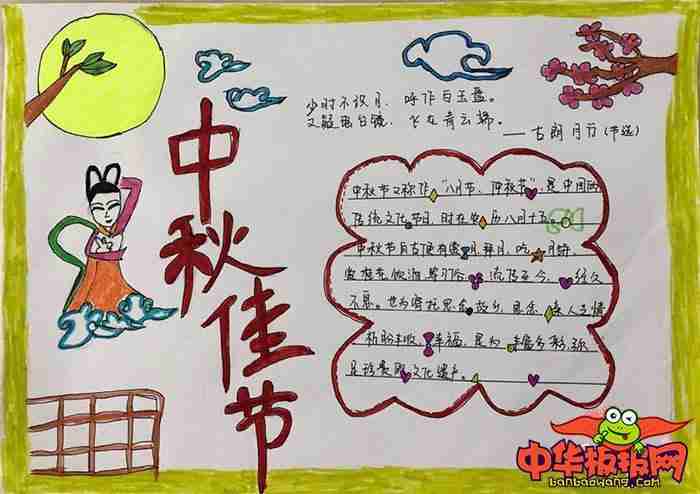 中秋佳节
少时不识月，呼作白玉盘。
又疑瑶台镜，飞在青云端。
——古朗月行（节选）
中秋节又称作"八月节、仲秋节"，是中国的
传统文化节日，时在农历八月十五。
中秋节自古便有赏月、拜月、吃月饼、
赏桂花、饮酒等习俗，流传至今，经久
不息。也为寄托思念故乡，思念亲人之情
祈盼丰收、幸福，成为丰富多彩、弥
足珍贵的文化遗产。
中华板报网
banbaowang.com